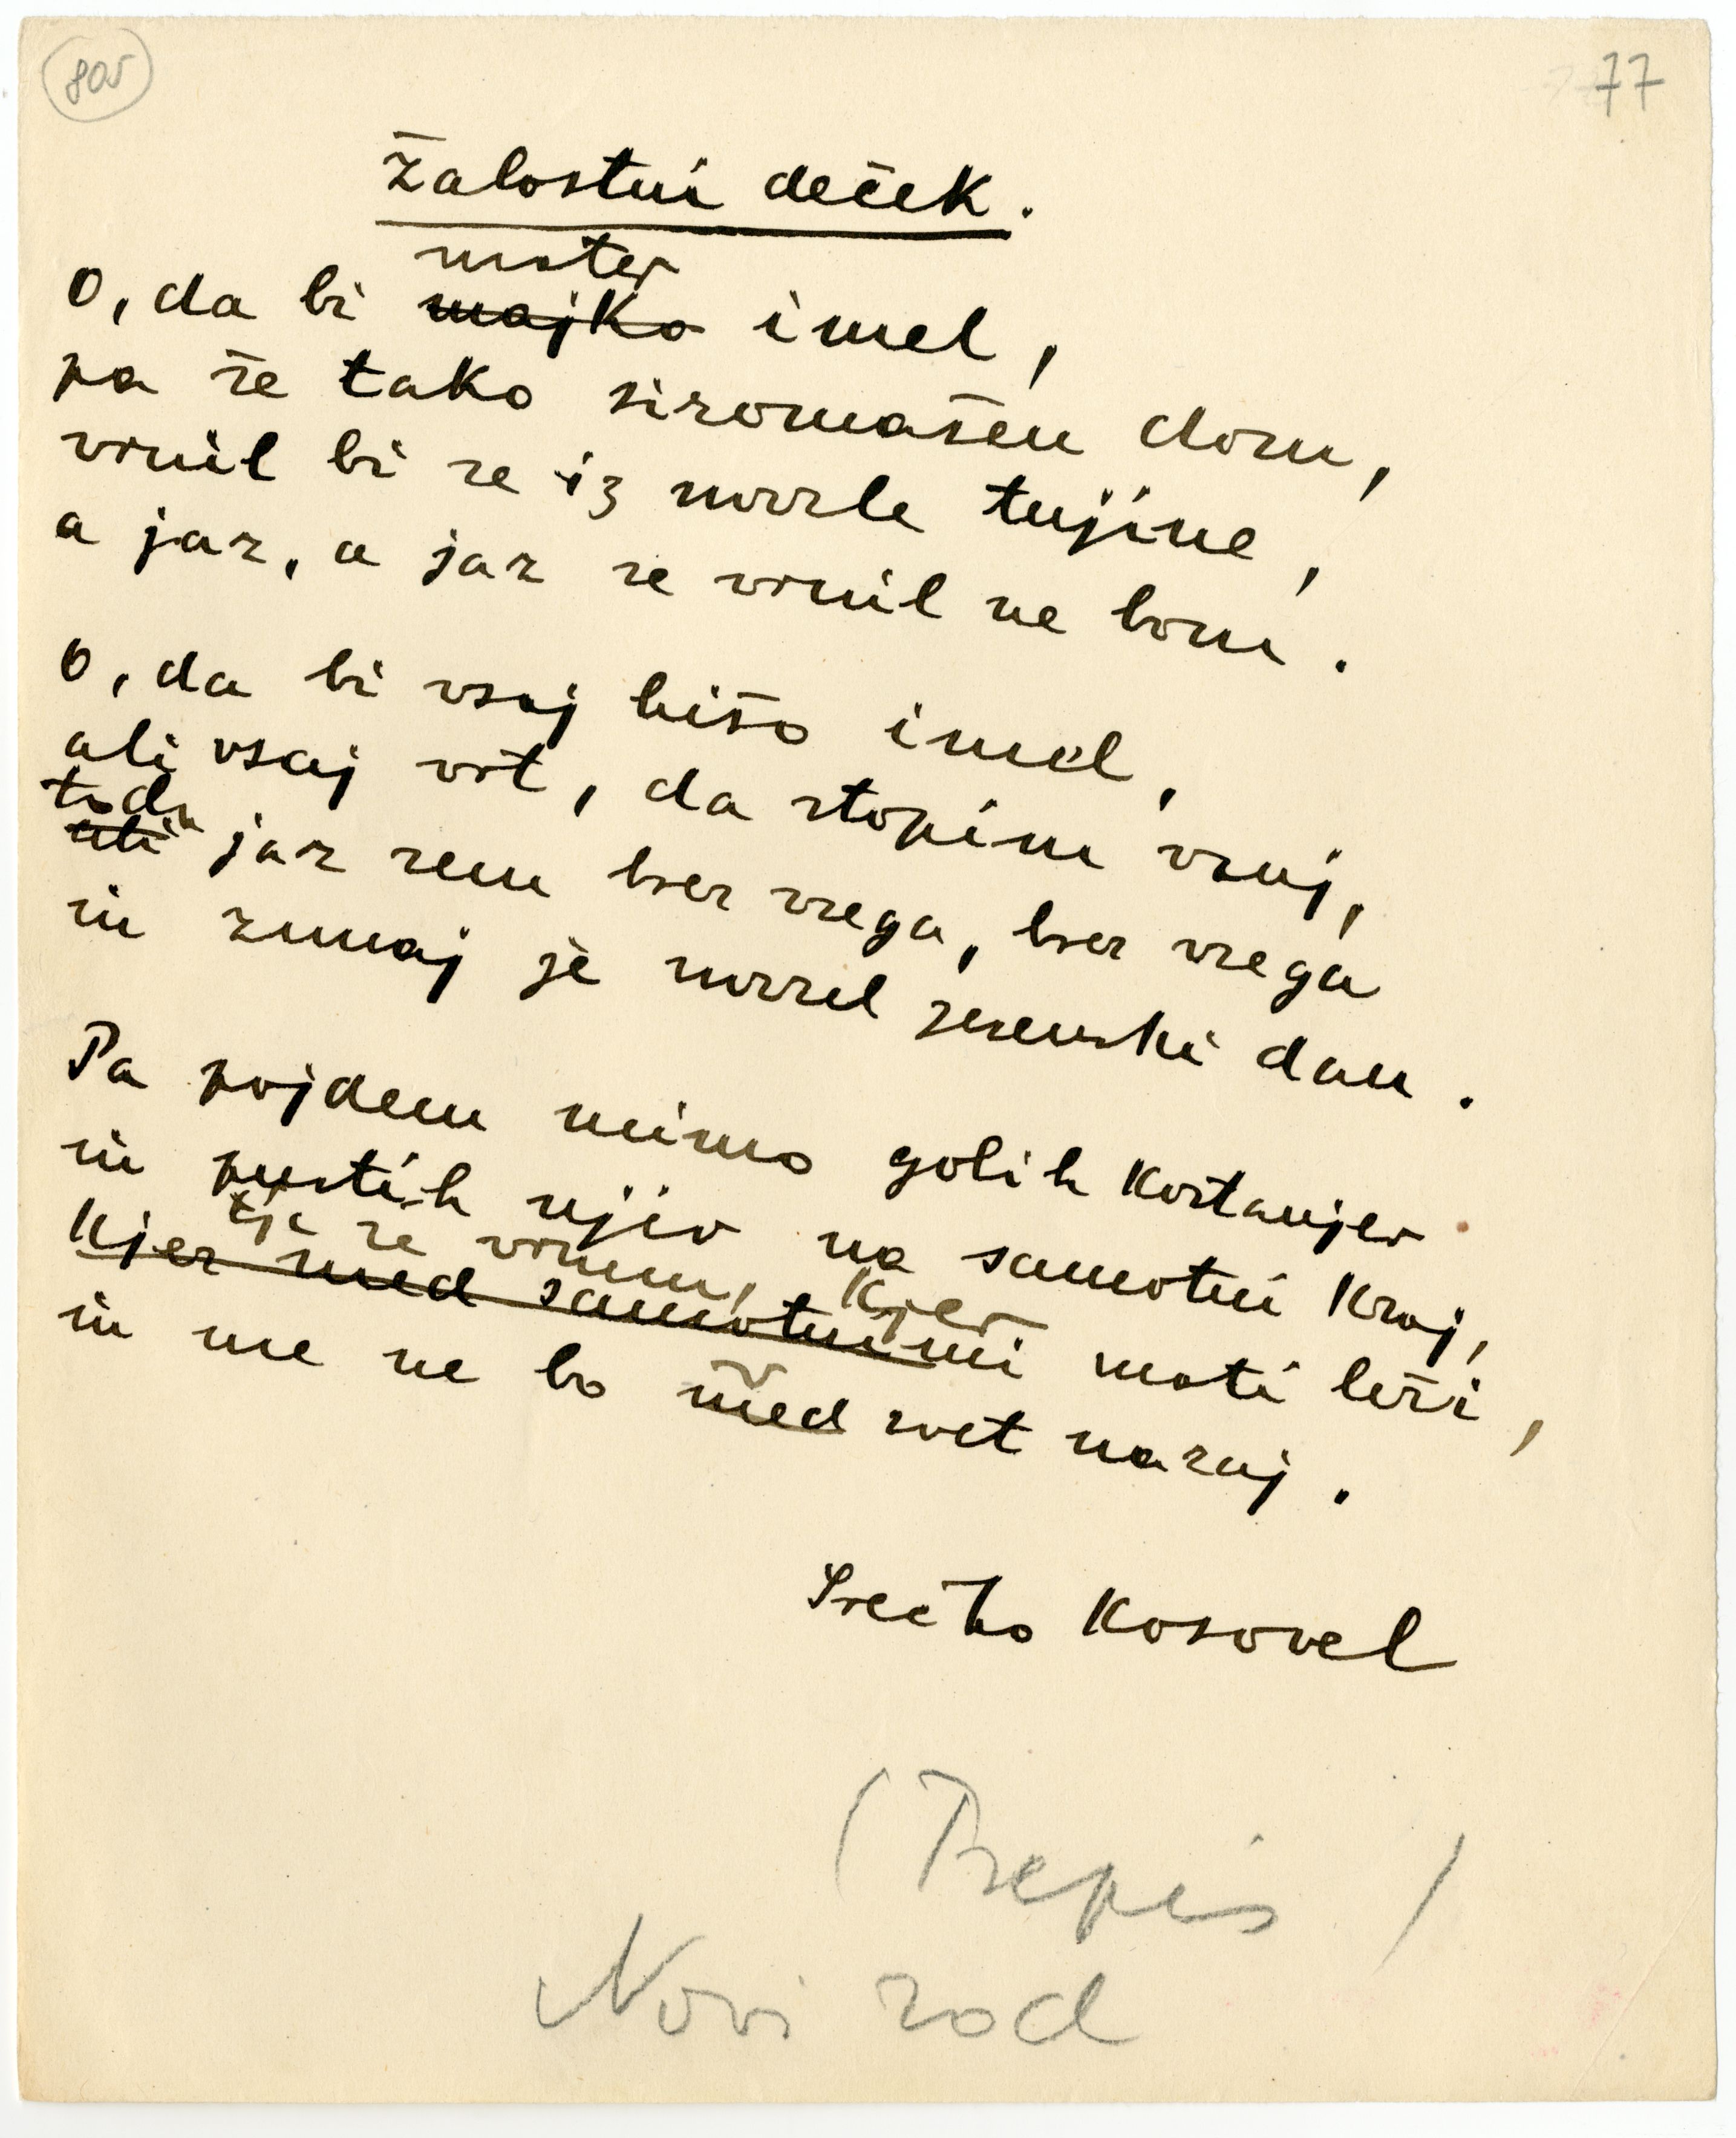 805
77
Žalostni deček.
mater
O, da bi majko imel,
pa še tako siromašen dom,
vrnil bi se iz mrzle tujine,
a jaz, a jaz se vrnil ne bom.
O, da bi vsaj hišo imel,
ali vsaj vrt, da stopim vanj,
toda
ali jaz sem brez vsega, brez vsega
in zunaj je mrzel jesenski dan.
Pa pojdem mimo golih kostanjev
in pustih njiv na samotni kraj,
tja se vrnem, kjer
kjer med samotnimi mati leži,
in me ne bo med svet nazaj.
Srečko Kosovel
(Prepis)
Novi rod